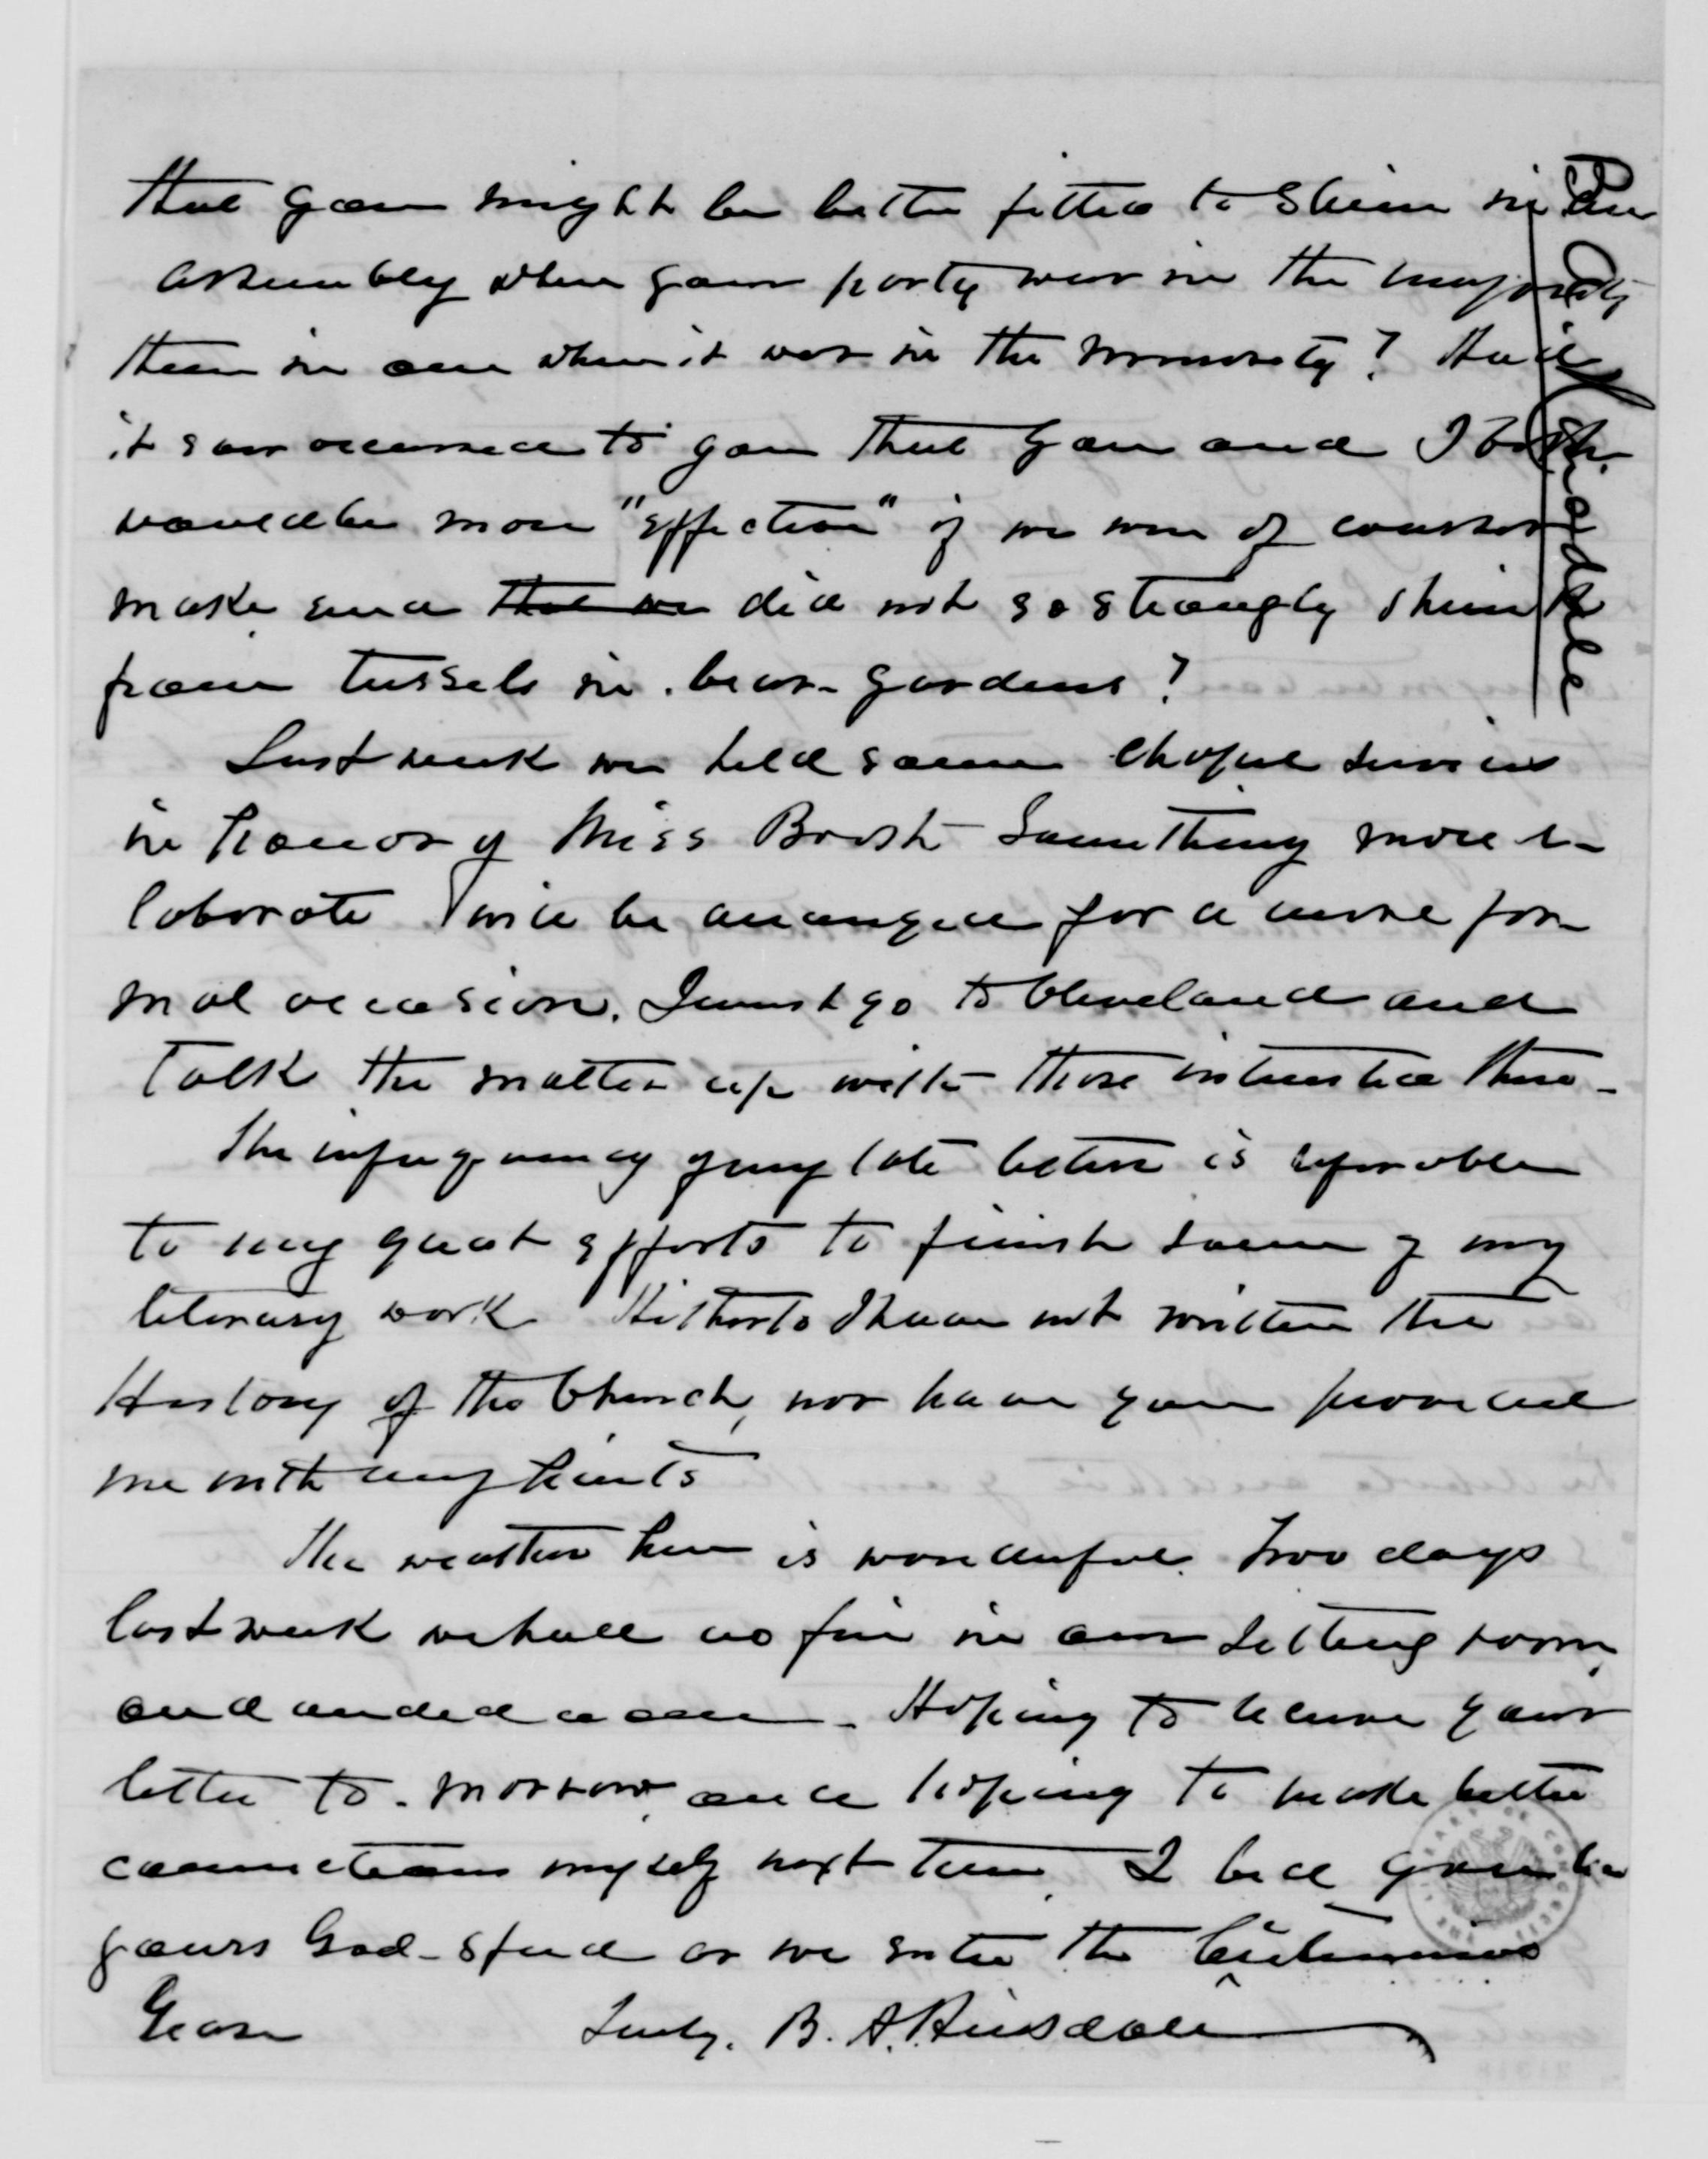 that you might be better fitted to shine in an
assembly when your party was in the majority
than in one when it was in the minority? Has
it ever occurred to you that you and I both
would be more "effective" if we were of coarser
make and that we did not so strongly shrink
from tussels in bear-gardens?
Last week we held some chapel services
in honor of Miss Booth Something more e-
laborate will be arranged for a more for-
mal occasion. I must go to Cleveland and
talk the matter up with those interested there -
The infrequency of my late letters is
to my great efforts to finish some of my
literary work Hitherto I have not written the
History of the Church, nor have you provided
me with any hints
The weather here is wonderful. Two days
last week we had no fire in our sitting room,
and needed none. Hoping to receive your
letter to-morrow, and hoping to make better
connections myself next time, I bid you &
yours God-speed as we enter the Centennial
Year Truly, B. A. Hinsdale